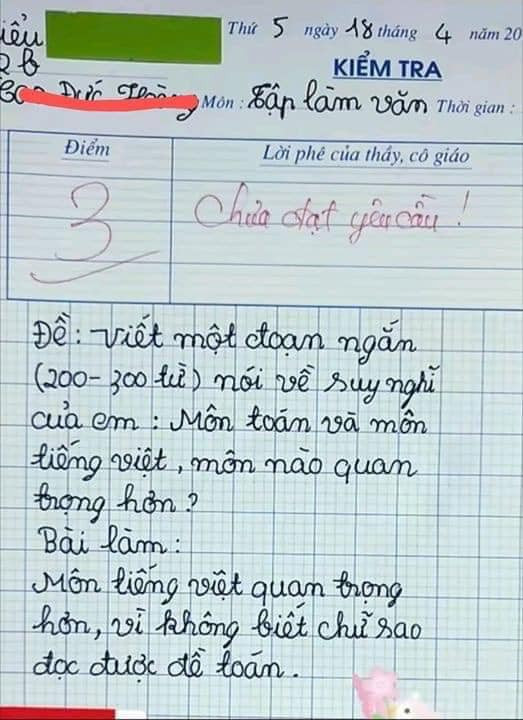 iểu
Thứ 5 ngày 18 tháng 4 năm 20
KIỂM TRA
Môn : Tập làm văn Thời gian :
Điểm
Lời phê của thầy, cô giáo
3
Chưa đạt yêu cầu !
Đề : Viết một đoạn ngắn
(200-300 từ) nói về suy nghĩ
của em : Môn toán và môn
tiếng việt, môn nào quan
trọng hơn ?
Bài làm :
Môn tiếng việt quan trọng
hơn, vì không biết chữ sao
đọc được đề toán.